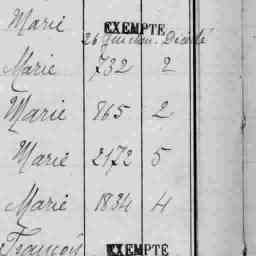 Marie EXEMPTÉ
26 Décédé
Marie 732 2
Marie 865 2
Marie 2172 5
Marie 1834 4
François EXEMPTÉ